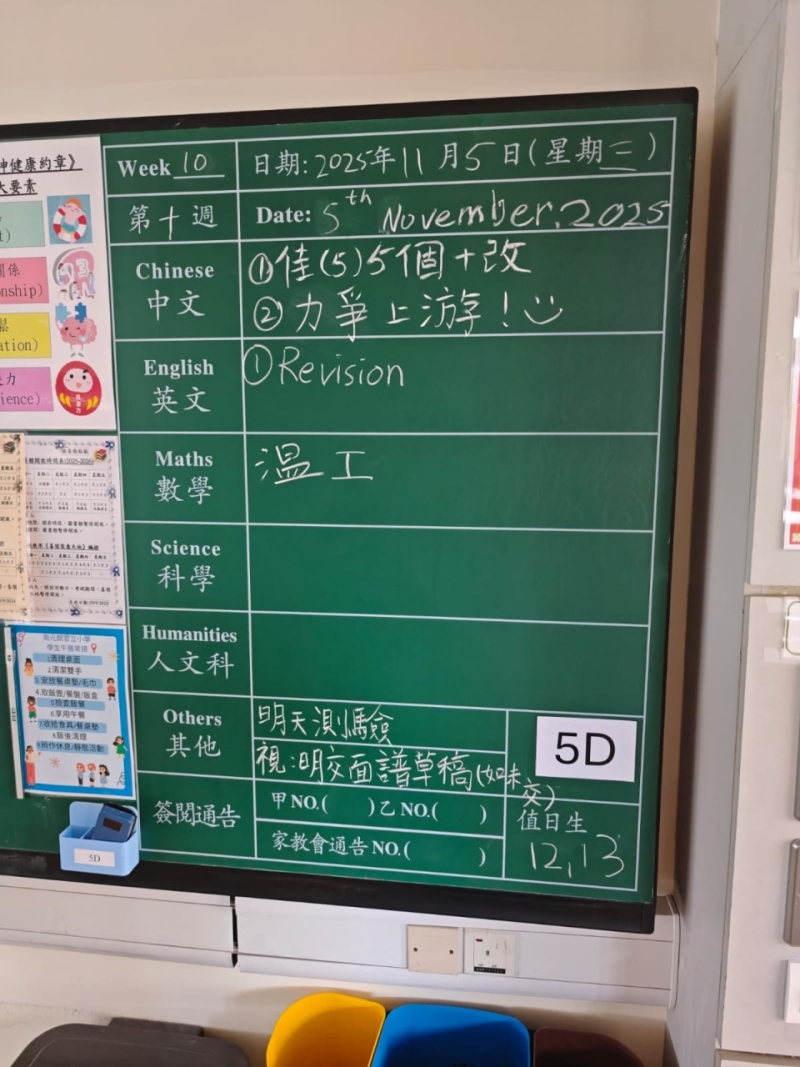 神健康約章》
大要素
Week 10
日期: 2025年11月5日(星期三)
第十週
Date: 5th November. 2025
Chinese
中文
①佳(5)5個+改
②力爭上游!
English
英文
①Revision
Maths
數學
溫工
Science
科學
Humanities
人文科
Others
其他
明天測驗
視:明交面譜草稿(如未交)
5D
簽閱通告
甲NO.( )乙NO.( )
家教會通告NO.( )
值日生
12,13
關係
onship)
ation)
ience)
學生午膳常規
1清理桌面
2清潔雙手
3.安放餐桌墊/毛巾
4.取飯壺/餐盤/飯盒
5檢查飯餐
6.享用午餐
7.收拾食具/餐桌墊
8飯後清理
9稍作休息/靜態活動
5D